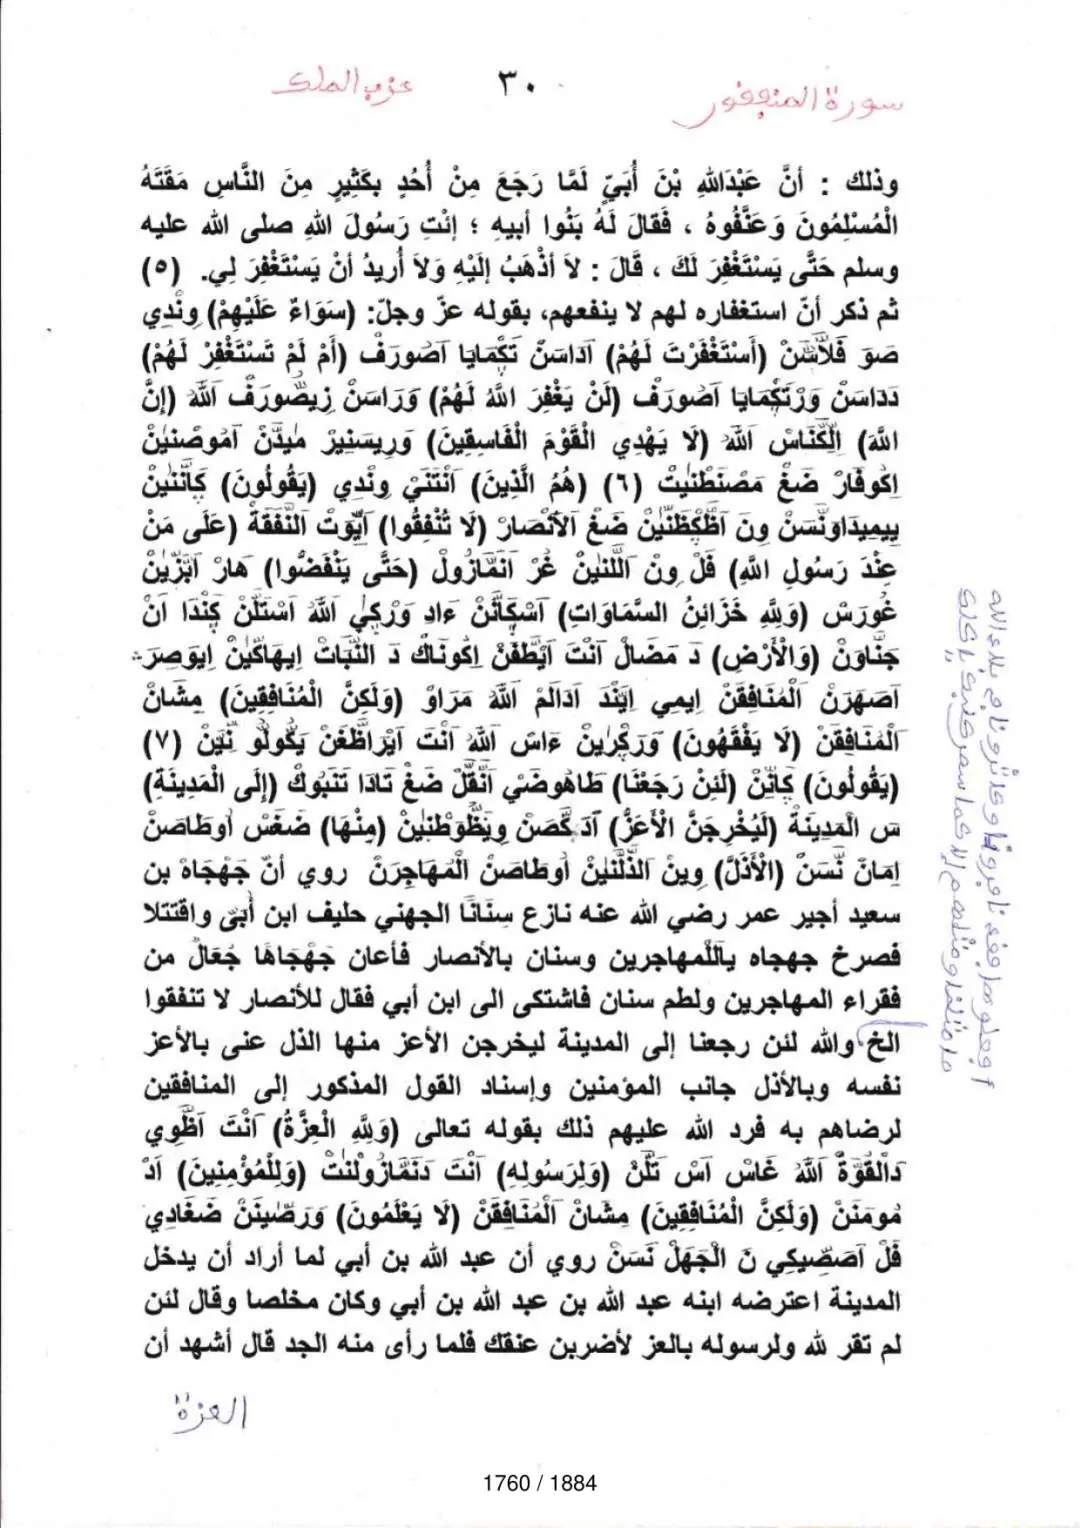 سورة المنافقون
٣٠
حزب الملك
وذلك : أنَّ عَبْدَاللهِ بْنَ أُبَيّ لَمَّا رَجَعَ مِنْ أُحُدٍ بِكَثِيرٍ مِنَ النَّاسِ مَقَتَهُ
الْمُسْلِمُونَ وَعَنَّفُوهُ ، فَقالَ لَهُ بَنُوا أبيهِ ؛ إنْتِ رَسُولَ اللهِ صلى الله عليه
وسلم حَتَّى يَسْتَغْفِرَ لَكَ ، قَالَ : لاَ أذْهَبُ إلَيْهِ وَلاَ أريدُ أنْ يَسْتَغْفِرَ لِي. (٥)
ثم ذكر أنّ استغفاره لهم لا ينفعهم، بقوله عزّ وجلّ: (سَوَاءٌ عَلَيْهِمْ) وِنْدِي
صَوَ فَلَّاسَنْ (أَسْتَغْفَرْتَ لَهُمْ) آدَاسَنْ تَكْمَايَا آصُورَفْ (أَمْ لَمْ تَسْتَغْفِرْ لَهُمْ)
دَدَاسَنْ وَرْتَكْمَايَا آصُورَفْ (لَنْ يَغْفِرَ اللَّهُ لَهُمْ) وَرَاسَنْ زِيصُّورَفْ اَللَّهْ (إِنَّ
اللَّهَ) اِلْكْنَاسْ اَللَّهْ (لَا يَهْدِي الْقَوْمَ الْفَاسِقِينَ) وَرِيسَنِيرْ مِيدَّنْ آمُوصْنِينْ
اِكُوفَارْ ضَغْ مَصْنَطْنِيتْ (٦) (هُمُ الَّذِينَ) آنْتَنَيْ وِنْدِي (يَقُولُونَ) كَانَّنِينْ
يِيمِيدَاوَنَّسَنْ وِنَ آظْكَظْنِينْ ضَغْ اَلْاَنْصَارْ (لَا تُنْفِقُوا) آيَّوَتْ اَلنَّفَقَةْ (عَلَى مَنْ
عِنْدَ رَسُولِ اللَّهِ) فَلْ وِنْ اَللَّنِينْ غُرْ اَنْمَّازُولْ (حَتَّى يَنْفَضُّوا) هَارْ آبَزِّينْ
غُورَسْ (وَلِلَّهِ خَزَائِنُ السَّمَاوَاتِ) آسْكَانَّنْ ءَادِ وَرْكِي اَللَّهْ اَسْتَلَّنْ كِنْدَا اَنْ
جِنَّاوَنْ (وَالْأَرْضِ) دَ مَضَالْ آنْتَ آيَطْفَنْ اِكُونَاكْ دَ اَلنَّبَاتْ اِيهَاكِينْ اِيوَصِرَ
آصَهَرَنْ اَلْمُنَافِقَنْ اِيمِي اِيَنْدَ آدَالَمْ اَللَّهْ مَرَاوْ (وَلَكِنَّ الْمُنَافِقِينَ) مِشَانْ
اَلْمُنَافِقَنْ (لَا يَفْقَهُونَ) وَرَكْرِينْ ءَاسْ اَللَّهْ آنْتَ آيَرَاظَغَنْ يَكُولُو نَيَنْ (٧)
(يَقُولُونَ) كَانَّنْ (لَئِنْ رَجَعْنَا) طَاهُوضَيْ آنْقَلْ ضَغْ تَادَا تَنْبُوكْ (إِلَى الْمَدِينَةِ)
سْ اَلمَدِينَةْ (لَيُخْرِجَنَّ الْأَعَزُّ) آدَكْصَنْ وِيظُّوظْنِينْ (مِنْهَا) ضَغَسْ أُوطَاصَنْ
اِمَانَ نَّسَنْ (الْأَذَلَّ) وِينْ اَلذَّلْنِينْ أُوطَاصَنْ اَلْمَهَاجِرَنْ روي أنّ جَهْجَاهْ بن
سعيد أجير عمر رضي الله عنه نازع سِنَانًا الجهني حليف ابن أُبَيّ واقتتلا
فصرخ جهجاه ياَللْمهاجرين وسنان بالأنصار فأعان جَهْجَاهًا جُعَالٌ من
فقراء المهاجرين ولطم سنان فاشتكى الى ابن أبي فقال للأنصار لا تنفقوا
الخ والله لئن رجعنا إلى المدينة ليخرجن الأعز منها الذل عنى بالأعز
نفسه وبالأذل جانب المؤمنين وإسناد القول المذكور إلى المنافقين
لرضاهم به فرد الله عليهم ذلك بقوله تعالى (وَلِلَّهِ الْعِزَّةُ) آنْتَ آظَّوِي
دَالْقُوَّةْ اَللَّهْ غَاسْ آسْ تَلَّنْ (وَلِرَسُولِهِ) آنْتَ دَنَمَّازُولْنَتْ (وَلِلْمُؤْمِنِينَ) آدْ
مُومَنَنْ (وَلَكِنَّ الْمُنَافِقِينَ) مِشَانْ اَلْمُنَافِقَنْ (لَا يَعْلَمُونَ) وَرَصِّينَنْ ضَغَادِي
فَلْ آصَصِّيكِي نَ الْجَهَلْ نَسَنْ روي أن عبد الله بن أبي لما أراد أن يدخل
المدينة اعترضه ابنه عبد الله بن عبد الله بن أبي وكان مخلصا وقال لئن
لم تقر لله ولرسوله بالعز لأضربن عنقك فلما رأى منه الجد قال أشهد أن
العزة
1760 / 1884